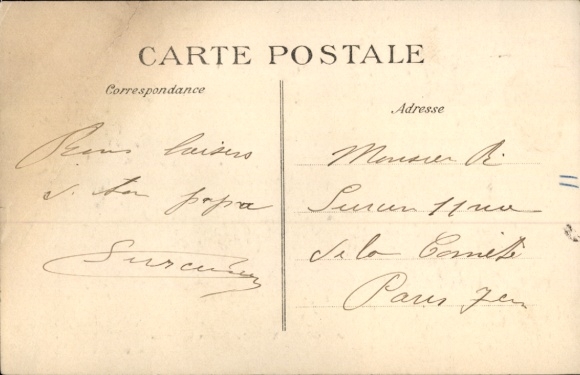 CARTE POSTALE
Correspondance
Adresse
Bons baisers
d. ton papa
Monsieur R.
11 rue
de la Comète
Paris 7e